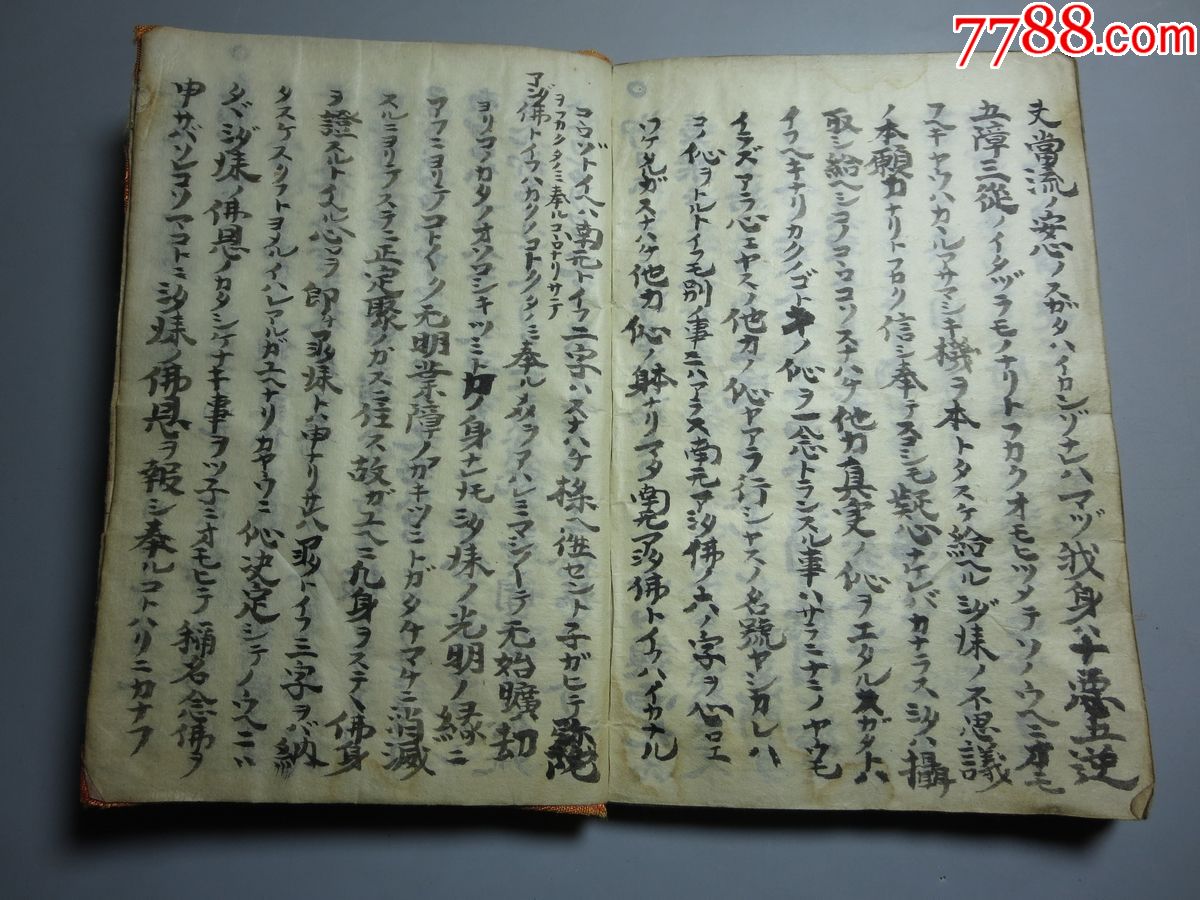 夫當流ノ安心ノスガタハイカンゾナレハマヅ我身ハ十悪五逆
五障三從ノイタヅラモノナリトフカクオモヒツメテソノウヘニオモ
フヘキヤウハカヽルアサマシキ機ヲ本トタスケ給ヘル弥陀ノ不思議
ノ本願力ナリトフカク信シ奉テスコシモ疑心ナケレバカナラス弥陀ハ攝
取シ給ヘシコノコヽロコソスナハチ他力真実ノ信ヲエタルスガタトハ
イフヘキナリカクノゴトキノ信ヲ一念トランスル事ハサラニナニノヤウモ
イラズアラ心エヤスノ他力ノ信ヤアラ行シヤスノ名號ヤシカレハ
コノ信ヲトルトイフモ別ノ事ニハアラス南无阿弥陀佛ノ六ノ字ヲ心ロエ
ワケタルガスナハチ他力信ノ躰ナリマタ南无阿弥陀佛トイフハイカナル
コヽロゾトイヘハ南无トイフ二字ハスナハチ極樂ヘ徃生セントネガヒテ弥陀
ヲフカクタノミ奉ルコヽロナリサテ
阿弥陀佛トイフハカクノコトクタノミ奉ル衆生ヲアハレミマシ〳〵テ无始曠劫
ヨリコノカタノオソロシキツミトカノ身ナレトモ弥陀如来ノ光明ノ縁ニ
アフニヨリテコト〳〵ク无明業障ノフカキツミトガタチマチニ消滅
スルニヨリテスデニ正定聚ノカスニ住ス故ガユヘニ凡身ヲステヽ佛身
ヲ證スルトイヘル心ヲ即チ阿弥陀如来トハ申ナリサレハ阿弥陀トイフ三字ヲバ納
タスケスクフトヨメルイハレアルガユヘナリカヤウニ信心決定シテノウヘニハ
タヾ弥陀如来ノ佛恩ノカタシケナキ事ヲツネニオモヒテ稱名念佛ヲ
申サバソレコソマコトニ弥陀如来ノ佛恩ヲ報シ奉ルコトハリニカナフ
7788.com